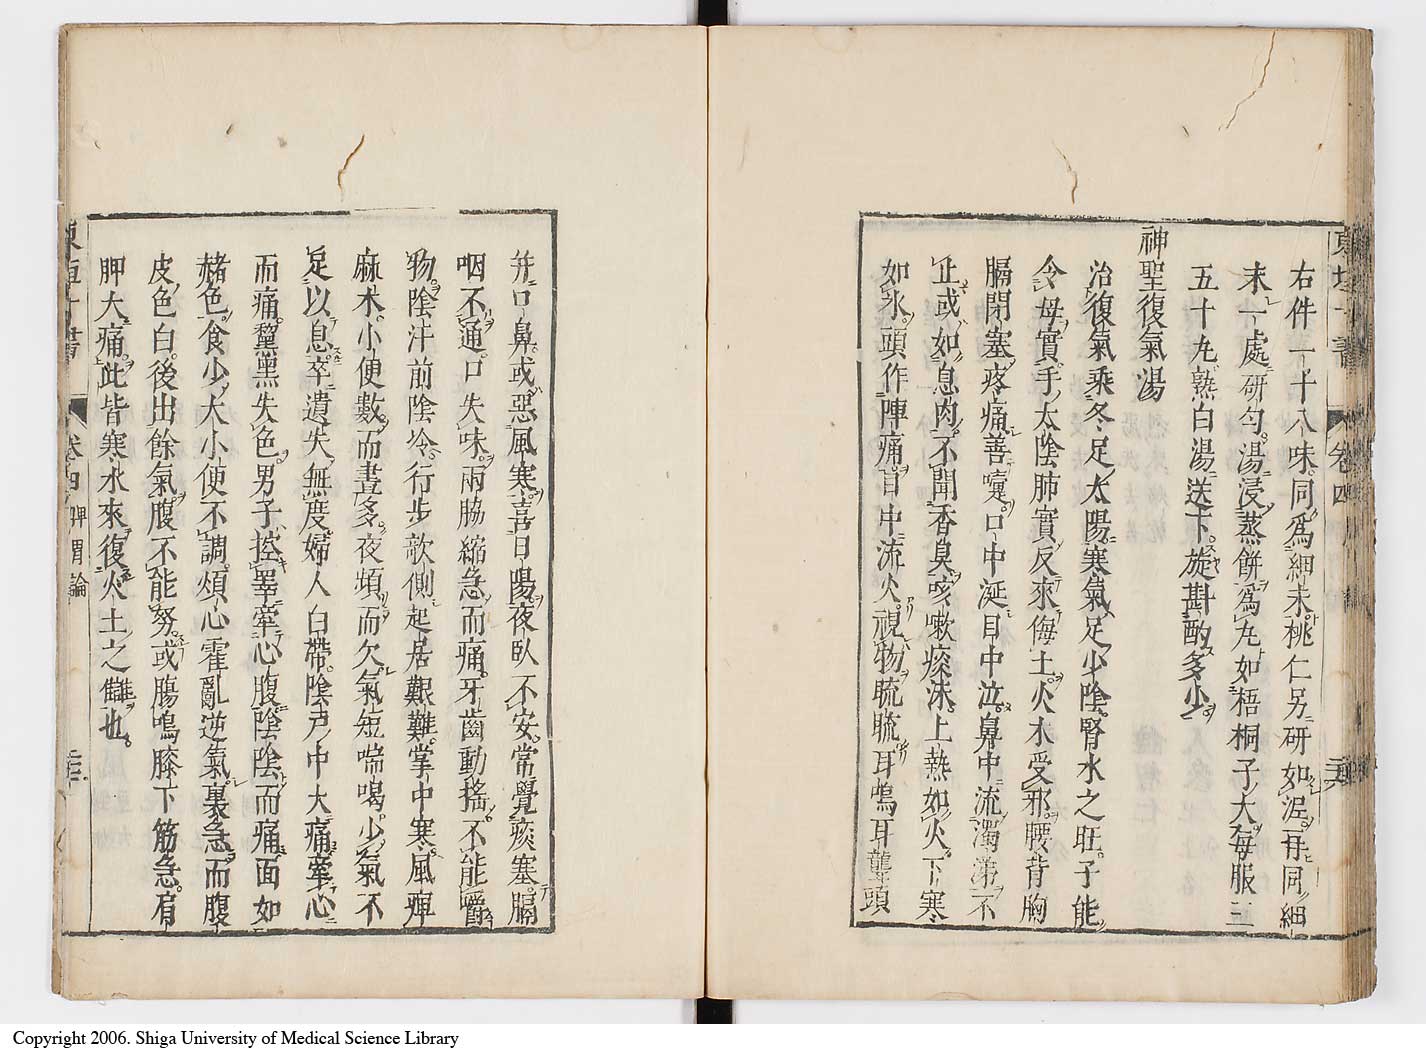 右件一十八味同爲細末桃仁另研如泥再同細
末一處研勻湯浸蒸餅爲丸如梧桐子大每服三
五十丸熟白湯送下旋斟酌多少
神聖復氣湯
治復氣乘冬足太陽寒氣足少陰腎水之旺子能
令母實手太陰肺實反來侮土火木受邪腰背胸
膈閉塞疼痛善嚏口中涎目中泣鼻中流濁涕不
止或如息肉不聞香臭咳嗽痰沫上熱如火下寒
如氷頭作陣痛目中流火視物䀮䀮耳鳴耳聾頭
卷四
并口鼻或惡風寒喜日陽夜臥不安常覺痰塞膈
咽不通口失味兩脇縮急而痛牙齒動搖不能嚼
物陰汗前陰冷行步欹側起居艱難掌中寒風痺
麻木小便數而晝多夜頻而欠氣短喘喝少氣不
足以息卒遺失無度婦人白帶陰戸中大痛牽心
而痛黧黑失色男子控睪牽心腹陰陰而痛面如
赭色食少大小便不調煩心霍亂逆氣裏急而腹
皮色白後出餘氣腹不能努或腸鳴膝下筋急肩
胛大痛此皆寒水來復火土之讎也
東垣十書
卷四
脾胃論
Copyright 2006. Shiga University of Medical Science Library